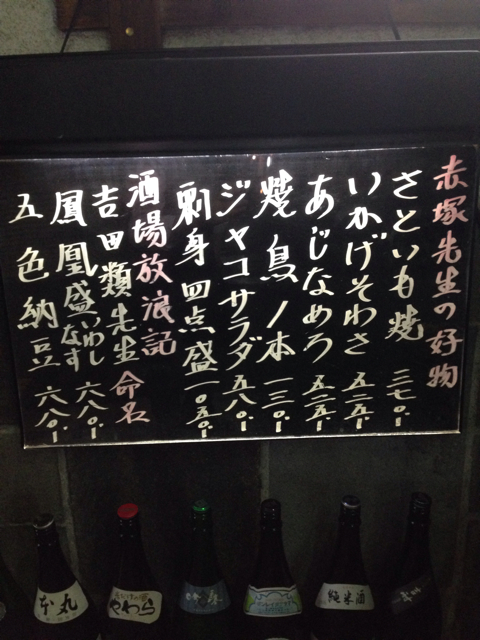 赤塚先生の好物
さといも焼 三七〇.-
いかげそわさ 五二五.-
あじなめろ 五二五.-
焼鳥ノ本 一三〇.-
ジャコサラダ 五八〇.-
刺身四点盛 一〇五〇.-
酒場放浪記
吉田類先生 命名
鳳凰盛 いわし なす 六八〇.-
五色納豆 六八〇.-
本丸
やわら
純米酒